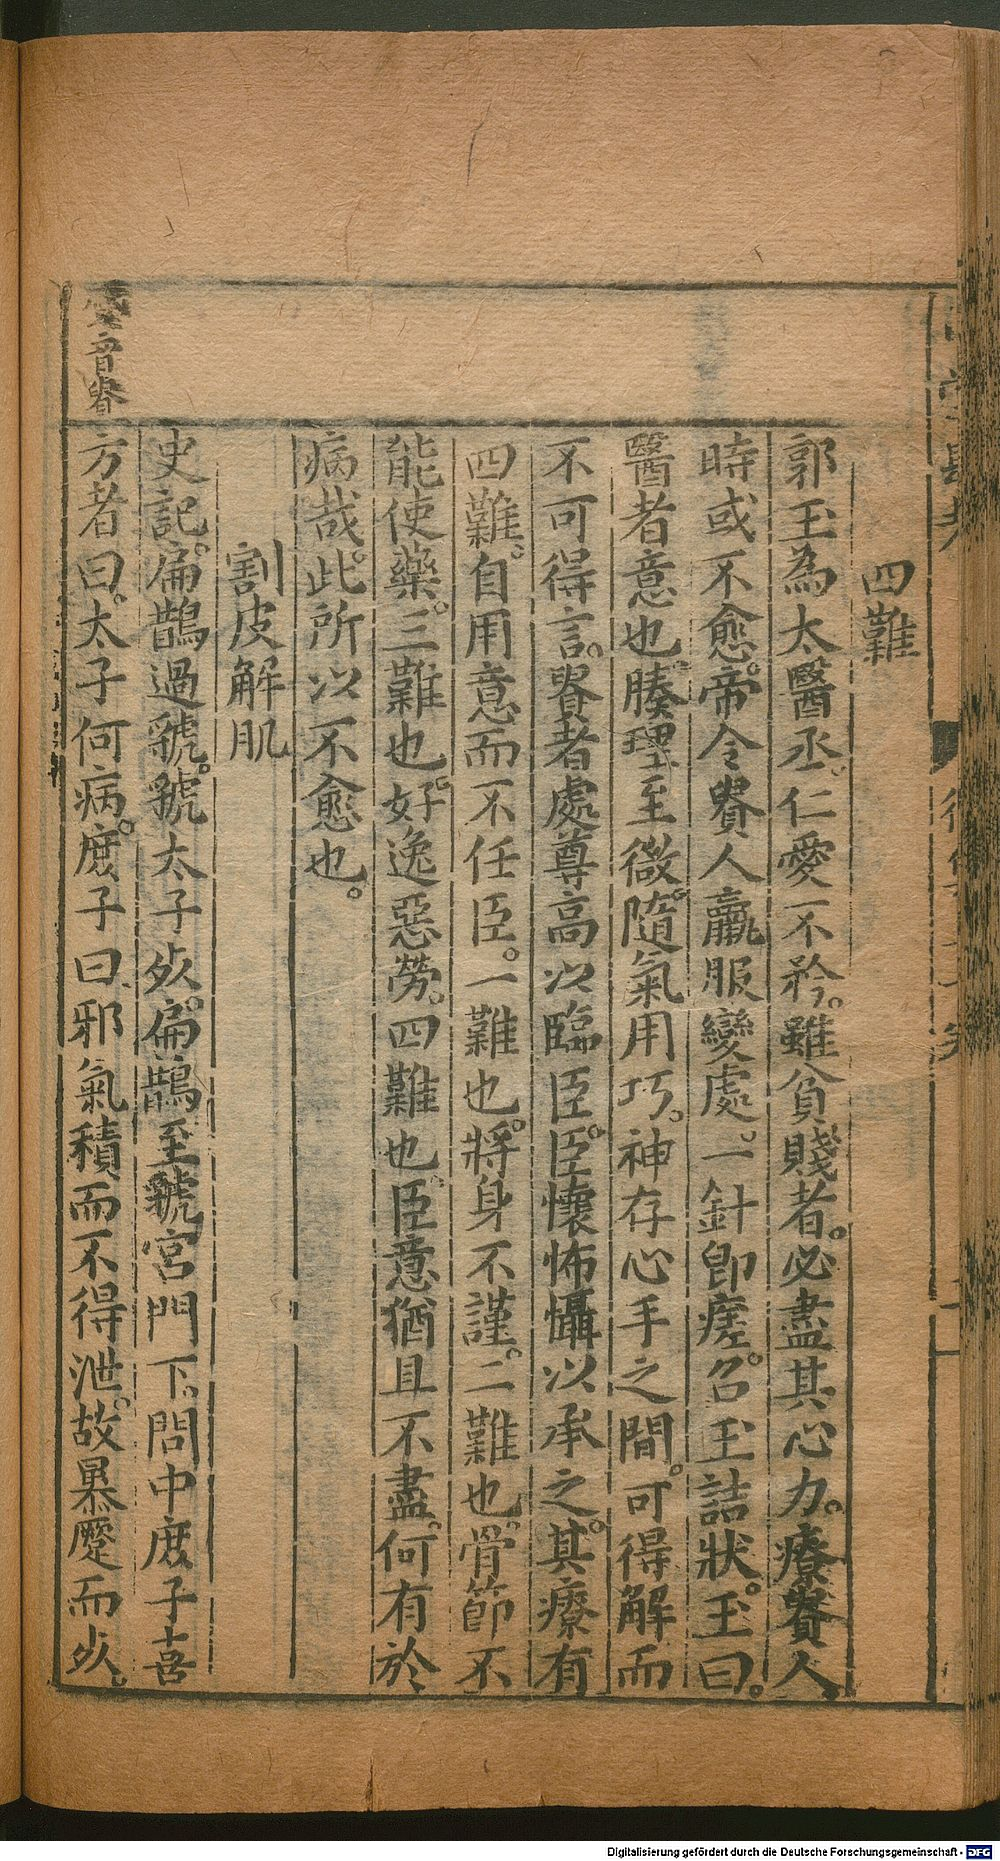 四難
郭玉為太醫丞。仁愛不矜。雖貧賤者。必盡其心力。療貴人。
時或不愈。帝令貴人羸服變處。一針即瘥。召玉詰狀。玉曰。
醫者意也。腠理至微。隨氣用巧。神存心手之間。可得解而
不可得言。貴者處尊高以臨臣。臣懷怖懾以承之。其療有
四難。自用意而不任臣。一難也。將身不謹。二難也。骨節不
能使藥。三難也。好逸惡勞。四難也。臣意猶且不盡。何有於
病哉。此所以不愈也。
割皮解肌
史記。扁鵲過虢。虢太子死。扁鵲至虢宮門下。問中庶子喜
方者曰。太子何病。庶子曰。邪氣積而不得泄。故暴蹷而死。
音
Digitalisierung gefördert durch die Deutsche Forschungsgemeinschaft - DFG